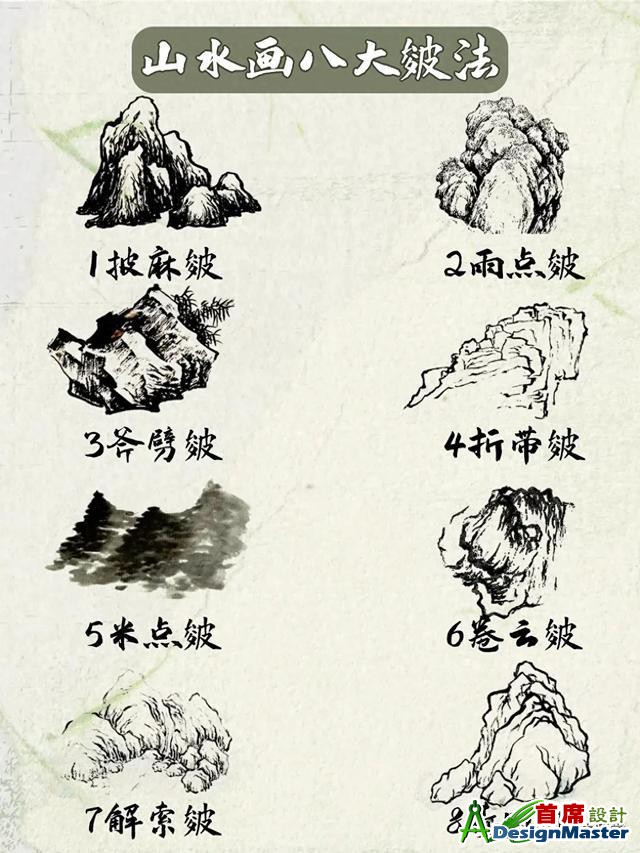 山水画八大皴法
1披麻皴
2雨点皴
3斧劈皴
4折带皴
5米点皴
6卷云皴
7解索皴
8
首席設計
DesignMaster